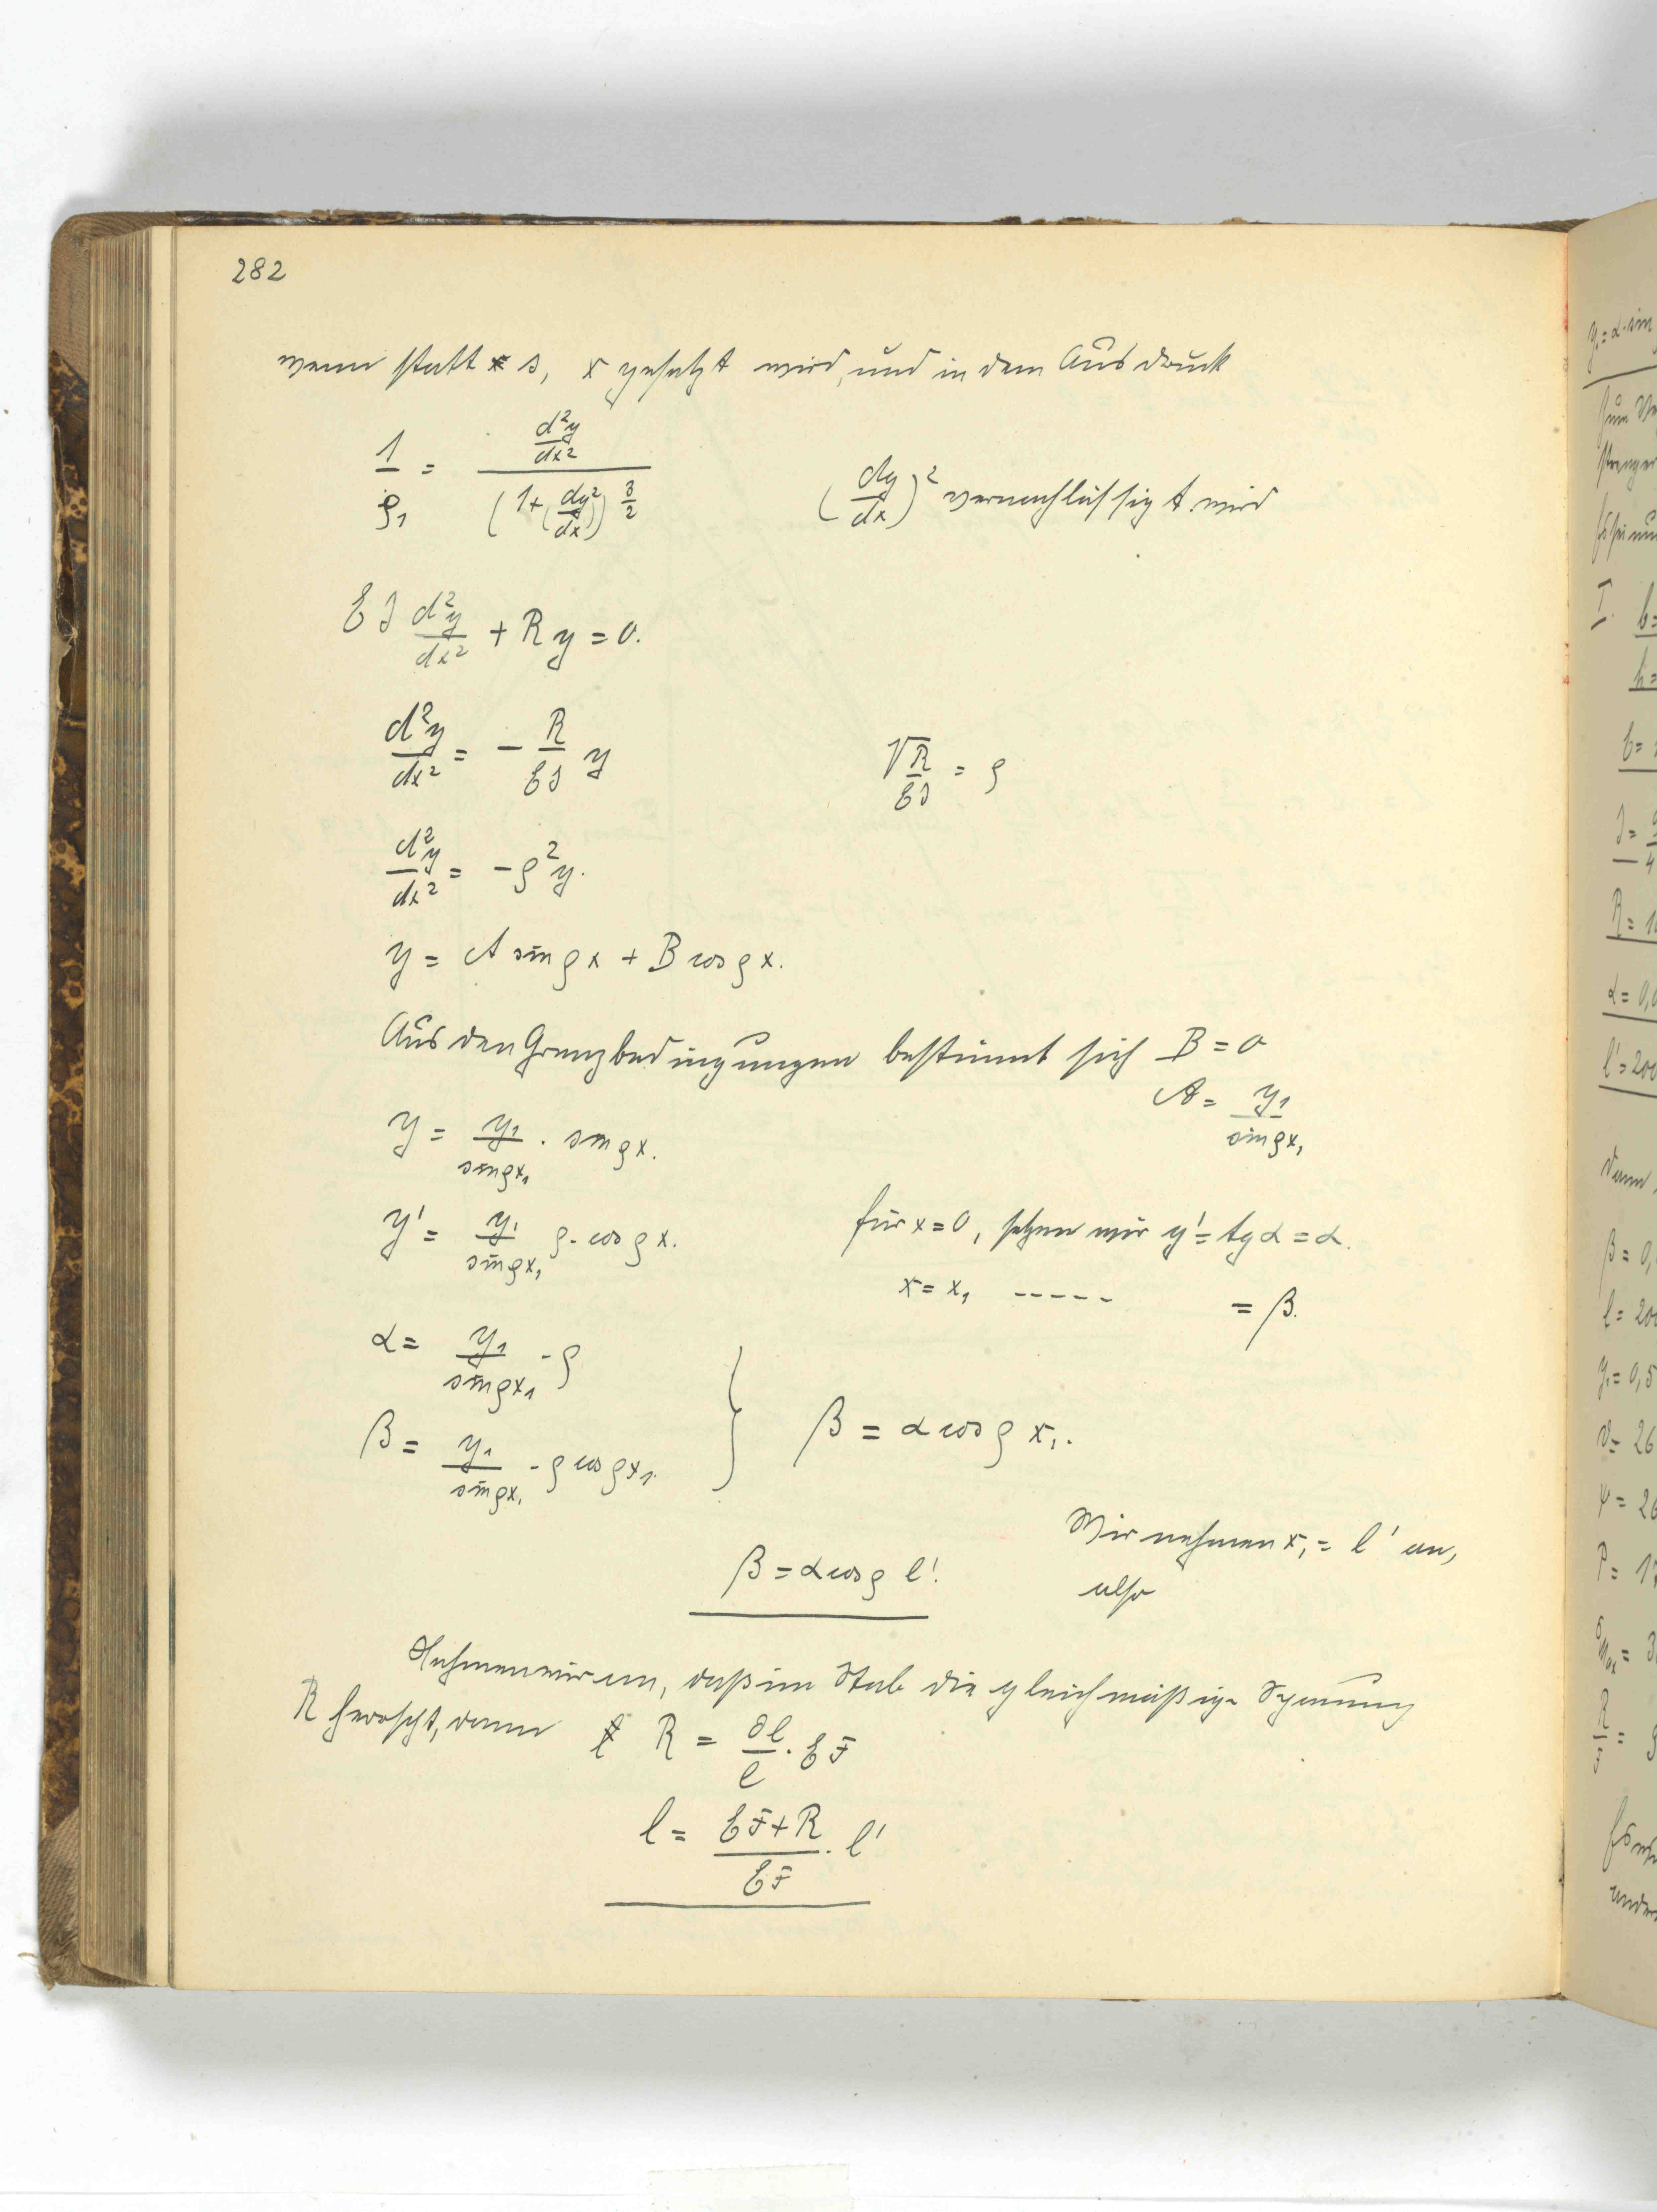 282
wenn statt s, x gesetzt wird, und in dem Ausdruck
1/ρ₁ = (d²y/dx²) / (1+(dy/dx)²)^(3/2)    (dy/dx)² vernachlässigt wird
EJ d²y/dx² + Ry = 0.
d²y/dx² = - R/EJ y    √R/EJ = ρ
d²y/dx² = -ρ²y.
y = A sin ρx + B cos ρx.
Aus den Grenzbedingungen bestimmt sich B = 0
A = y₁/sin ρx₁
y = y₁/sin ρx₁ · sin ρx.
y' = y₁/sin ρx₁ ρ · cos ρx.    für x = 0, setzen wir y' = tg α = α.
x = x₁ ----- = β.
α = y₁/sin ρx₁ · ρ
β = y₁/sin ρx₁ · ρ cos ρx₁.    } β = α cos ρ x₁.
Wir nehmen x₁ = l' an,
also
β = α cos ρ l'.
Nehmen wir an, daß im Stab die gleichmäßige Spannung
R herrscht, dann R = ∂l/l · EF
l = (EF+R)/EF · l'
y₁ = α · sin
I.
b =
h =
E =
J =
R = 1
α = 0,0
l' = 200
dann
β = 0,
l = 200
y₁ = 0,5
ψ = 26
P = 17
R